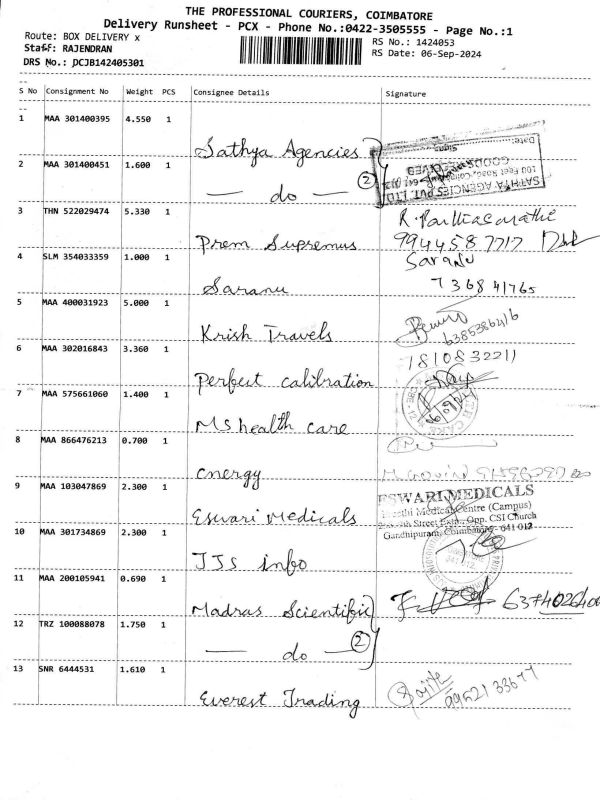 THE PROFESSIONAL COURIERS, COIMBATORE
Delivery Runsheet - PCX - Phone No.:0422-3505555 - Page No.:1
Route: BOX DELIVERY x
RS No.: 1424053
Staff: RAJENDRAN
RS Date: 06-Sep-2024
DRS No.: DCJB142405301
S No Consignment No Weight PCS Consignee Details Signature
1 MAA 301400395 4.550 1
Sathya Agencies
Date:
Signs
GOODS RECEIVED
100 Feet Road, Coimbatore - 641 012
SATHYA AGENCIES PVT. LTD
2 MAA 301400451 1.600 1
— do — 2
3 THN 522029474 5.330 1
Prem Supremus
9944587717
4 SLM 354033359 1.000 1
Saranu
Saranu
736841765
5 MAA 400031923 5.000 1
Krish Travels
6385386416
6 MAA 302016843 3.360 1
7810832211
perfect calibration
7 MAA 575661060 1.400 1
MS health care
8 MAA 866476213 0.700 1
cnergy
9 MAA 103047869 2.300 1
Eswari Medicals
ESWARI MEDICALS
Medical Centre (Campus)
Street Extn., Opp. CSI Church
Gandhipuram, Coimbatore - 641 012
10 MAA 301734869 2.300 1
JJS info
11 MAA 200105941 0.690 1
Madras Scientific
6374026406
12 TRZ 100088078 1.750 1
— do — 2
13 SNR 6444531 1.610 1
Everest Trading
9952133677